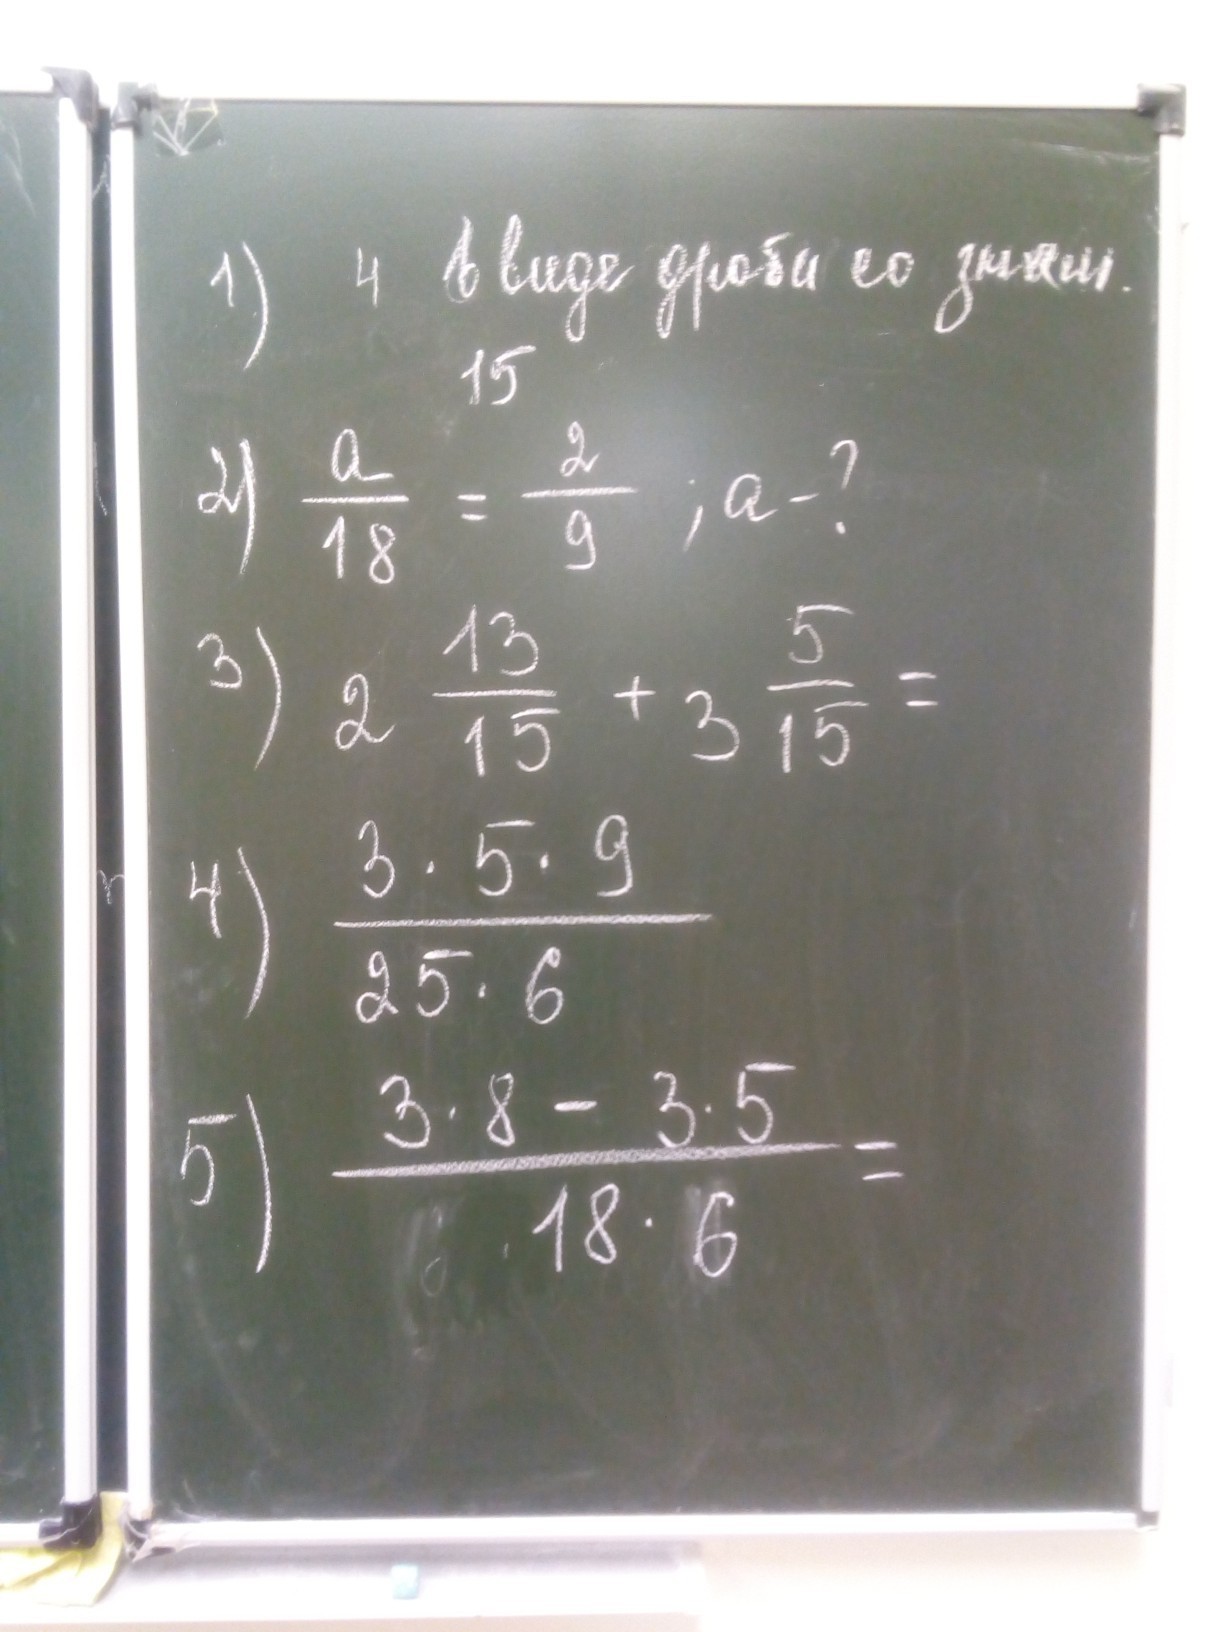 1) 4 в виде дроби со знам.
15
2) a/18 = 2/9 ; a - ?
3) 2 13/15 + 3 5/15 =
4) 3 · 5 · 9
25 · 6
5) 3 · 8 - 3 · 5 =
18 · 6